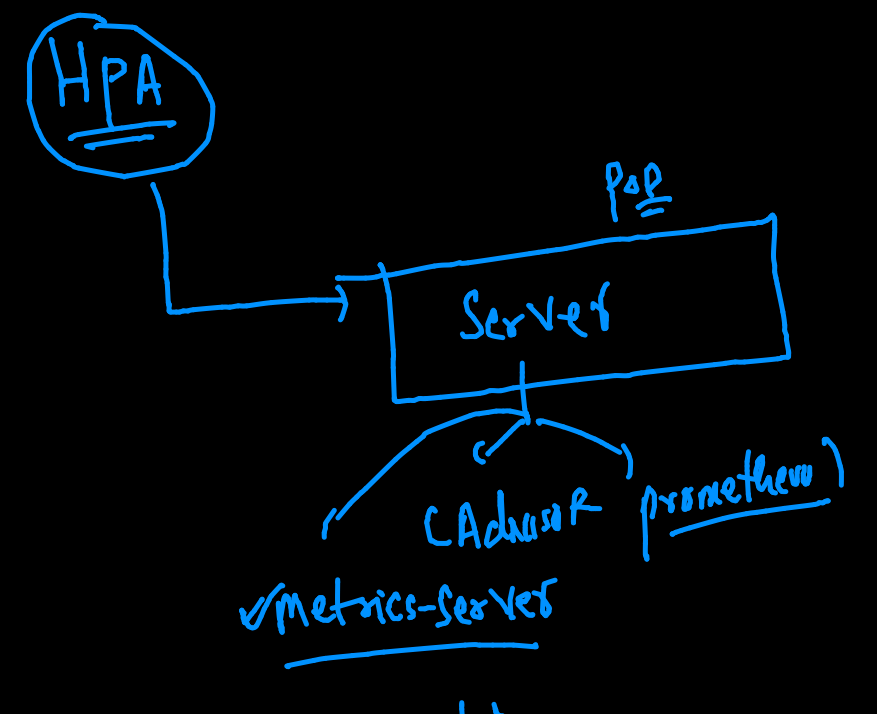 HPA
POP
Server
CAdvisor
prometheus
✓metrics-server